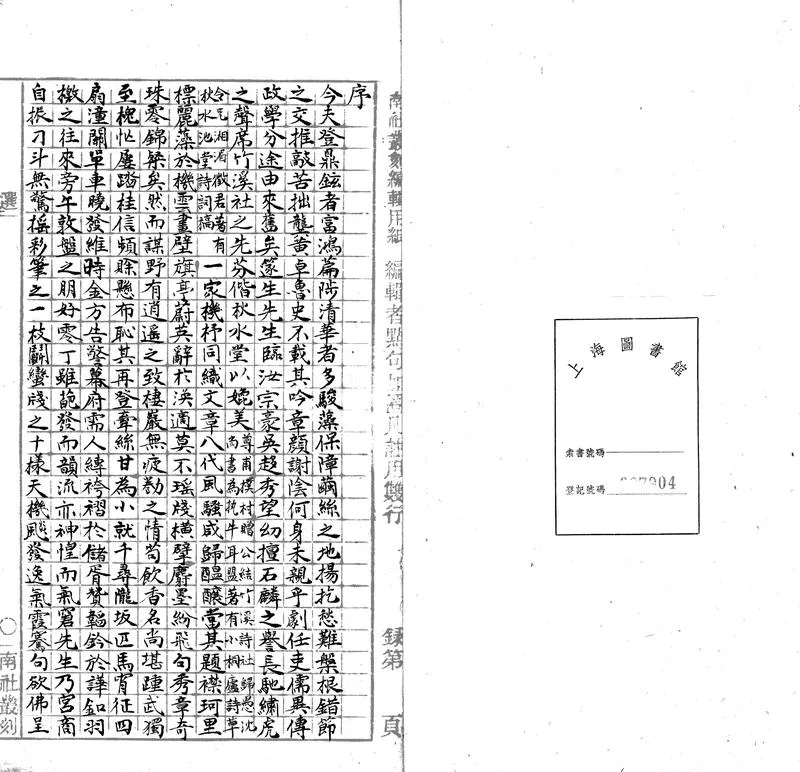 上海圖書館
索書號碼
登記號碼 04
南社叢刻編輯用紙 編輯者點句 雙行 錄第 頁
序
今夫登鼎鉉者富鴻篇陟清華者多駿藻保障繭絲之地揚抗愁難盤根錯節
之交推敲苦拙龔黃卓魯史不載其吟章顏謝陰何身未親乎劇任吏儒異傳
政學分途由來舊矣篴生先生臨汝宗豪吳趨秀望幼擅石麟之譽長馳繡虎
之聲席竹溪社之先芬偕秋水堂以媲美尊甫樸村贈公結竹溪詩社歸愚沈尚書為執牛耳盟著有小桐廬詩草
令弌湘湄徵君著有秋水池堂詩詞稿一家機杼同織文章八代風騷咸歸醞釀當其題襟珂里
標麗藻於機雲畫壁旗亭蔚英辭於渶適莫不瑤牋橫擘麝墨紛飛句秀章奇
珠零錦粲矣然而謀野有遒遥之致棲巖無疲勌之情苟飲香名尚堪踵武獨
至槐忙屢踏桂信頻賒懸布恥其再登牽絲甘為小就千尋隴坂匹馬宵征四
扇潼關單車曉發維時金方告警幕府需人縛袴褶於儲胥贊韜鈐於譁釦羽
檄之往來旁午敦盤之朋好零丁雖葩發而韻流亦神惶而氣窘先生乃宮商
自振刀斗無驚搖彩筆之一枝鬭蠻牋之十樣天機飈發逸氣霞騫句欲佛呈
選 〇 南社叢刻